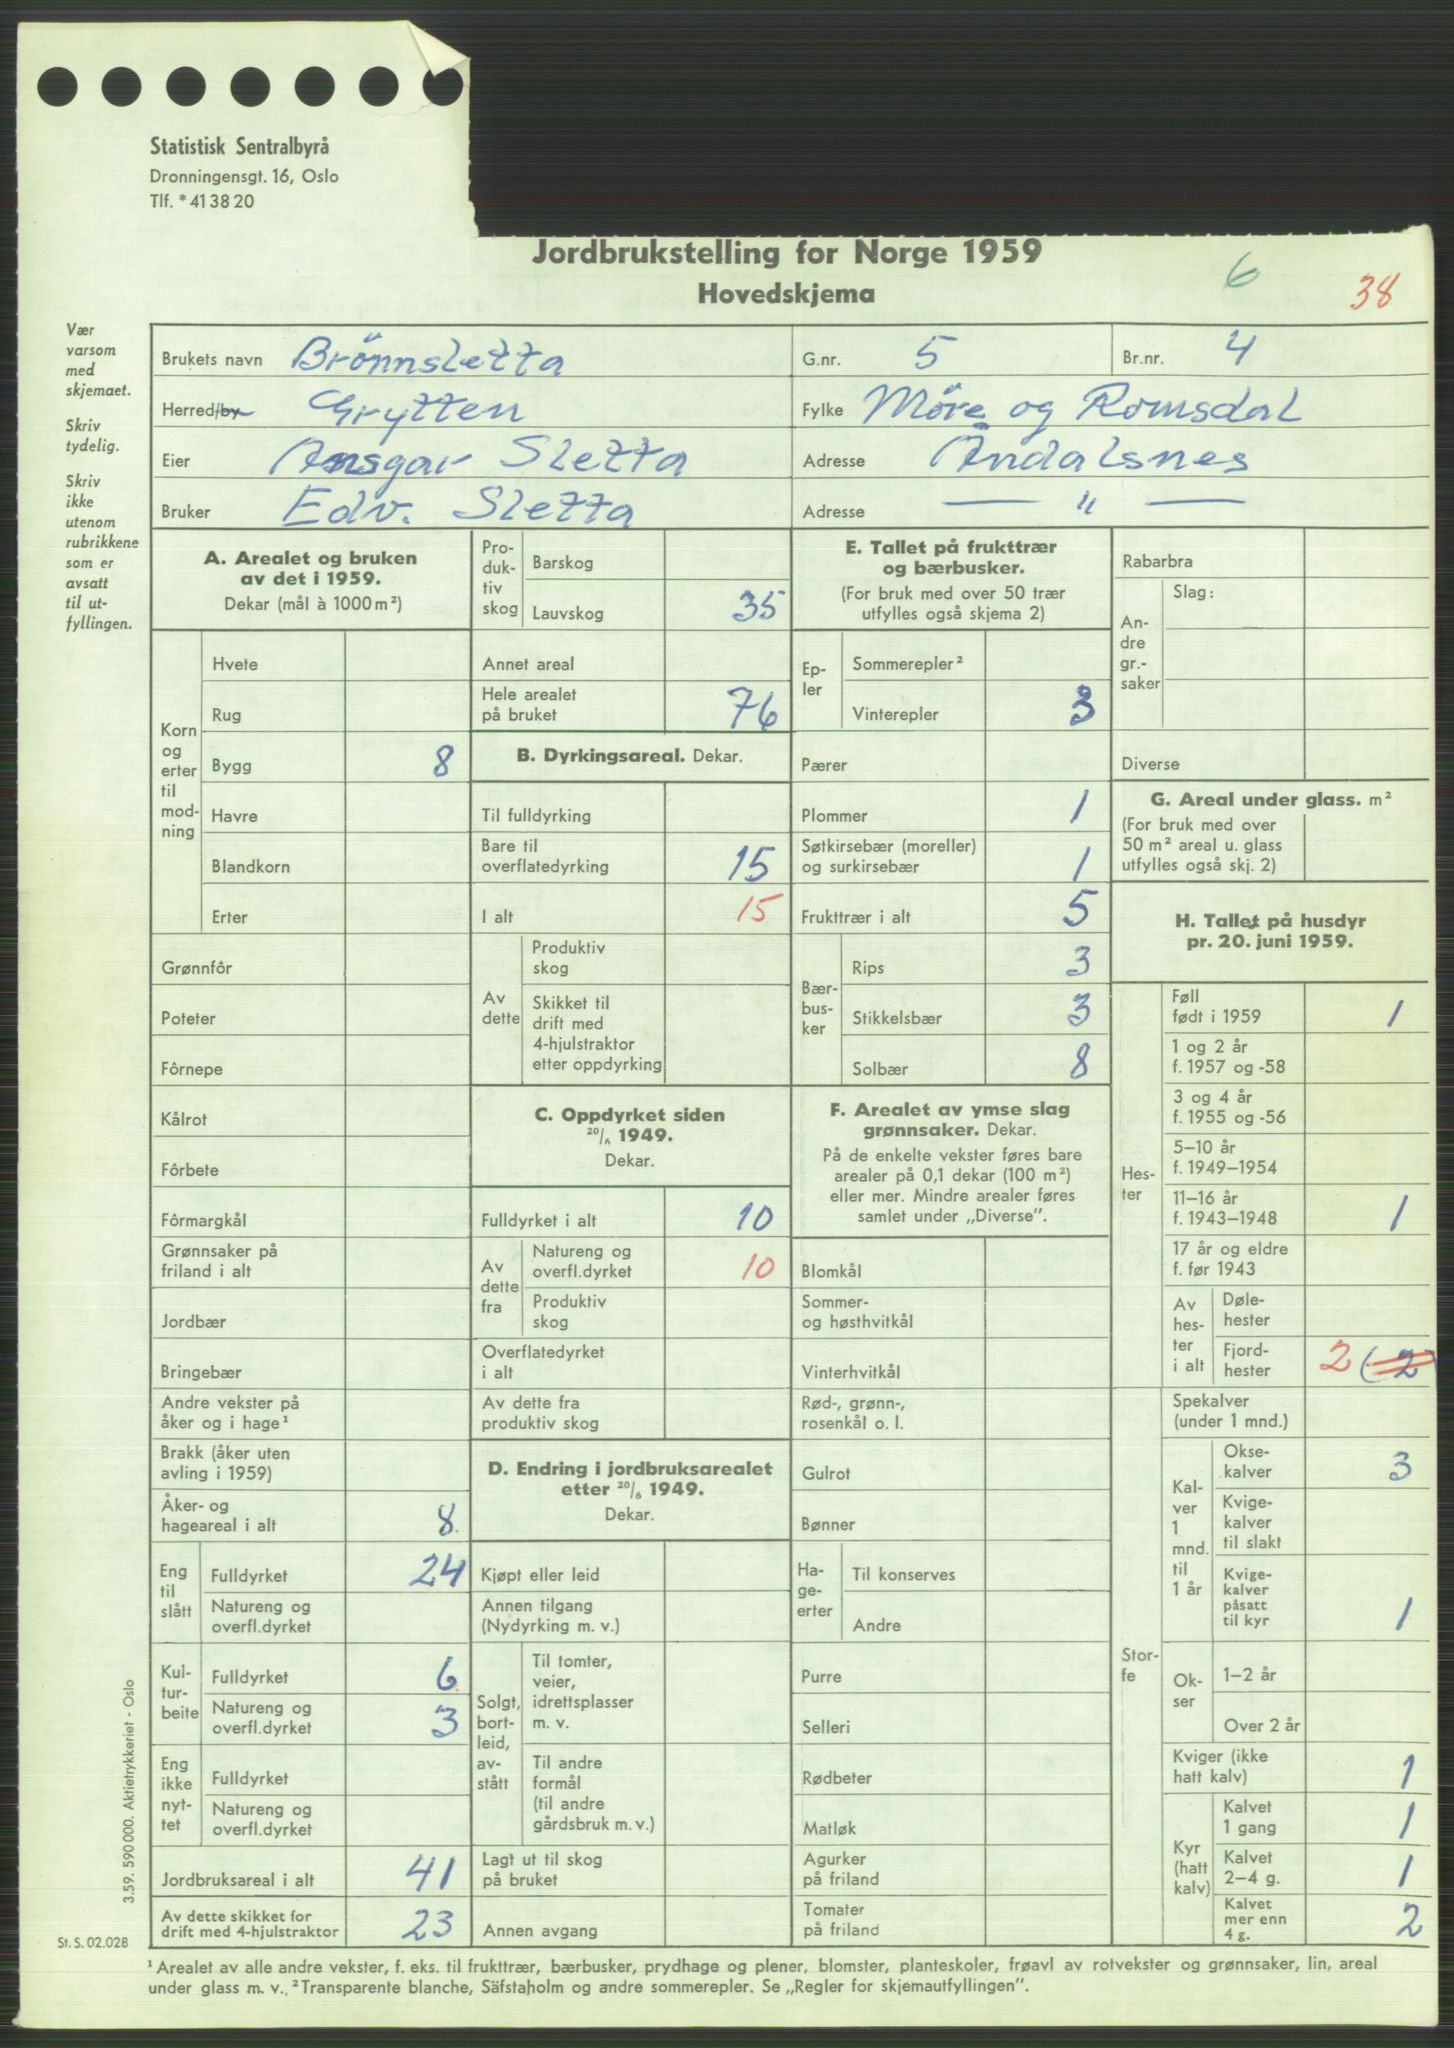 Statistisk Sentralbyrå
Dronningensgt. 16, Oslo
Tlf. * 41 38 20
Jordbrukstelling for Norge 1959
Hovedskjema
6
38
Vær
varsom
med
skjemaet.
Skriv
tydelig.
Skriv
ikke
utenom
rubrikkene
som er
avsatt
til ut-
fyllingen.
Brukets navn Brönnsletta G.nr. 5 Br.nr. 4
Herred/by Grytten Fylke Möre og Romsdal
Eier Ansgar Sletta Adresse Åndalsnes
Bruker Edv. Sletta Adresse — " —
A. Arealet og bruken
av det i 1959.
Dekar (mål à 1000 m²)
Korn
og
erter
til
mod-
ning
Hvete
Rug
Bygg 8
Havre
Blandkorn
Erter
Grønnfôr
Poteter
Fôrnepe
Kålrot
Fôrbete
Fôrmargkål
Grønnsaker på
friland i alt
Jordbær
Bringebær
Andre vekster på
åker og i hage¹
Brakk (åker uten
avling i 1959)
Åker- og
hageareal i alt 8
Eng
til
slått
Fulldyrket 24
Natureng og
overfl.dyrket
Kul-
tur-
beite
Fulldyrket 6
Natureng og
overfl.dyrket 3
Eng
ikke
nyt-
tet
Fulldyrket
Natureng og
overfl.dyrket
Jordbruksareal i alt 41
Av dette skikket for
drift med 4-hjulstraktor 23
Pro-
duk-
tiv
skog
Barskog
Lauvskog 35
Annet areal
Hele arealet
på bruket 76
B. Dyrkingsareal. Dekar.
Til fulldyrking
Bare til
overflatedyrking 15
I alt 15
Av
dette
Produktiv
skog
Skikket til
drift med
4-hjulstraktor
etter oppdyrking
C. Oppdyrket siden
20/6 1949.
Dekar.
Fulldyrket i alt 10
Av
dette
fra
Natureng og
overfl.dyrket 10
Produktiv
skog
Overflatedyrket
i alt
Av dette fra
produktiv skog
D. Endring i jordbruksarealet
etter 20/6 1949.
Dekar.
Kjøpt eller leid
Annen tilgang
(Nydyrking m. v.)
Solgt,
bort-
leid,
av-
stått
Til tomter,
veier,
idrettsplasser
m. v.
Til andre
formål
(til andre
gårdsbruk m. v.)
Lagt ut til skog
på bruket
Annen avgang
E. Tallet på frukttrær
og bærbusker.
(For bruk med over 50 trær
utfylles også skjema 2)
Ep-
ler
Sommerepler²
Vinterepler 3
Pærer
Plommer 1
Søtkirsebær (moreller)
og surkirsebær 1
Frukttrær i alt 5
Bær-
bus-
ker
Rips 3
Stikkelsbær 3
Solbær 8
F. Arealet av ymse slag
grønnsaker. Dekar.
På de enkelte vekster føres bare
arealer på 0,1 dekar (100 m²)
eller mer. Mindre arealer føres
samlet under „Diverse”.
Blomkål
Sommer-
og høsthvitkål
Vinterhvitkål
Rød-, grønn-,
rosenkål o. l.
Gulrot
Bønner
Ha-
ge-
erter
Til konserves
Andre
Purre
Selleri
Rødbeter
Matløk
Agurker
på friland
Tomater
på friland
Rabarbra
An-
dre
gr.-
saker
Slag:
Diverse
G. Areal under glass. m²
(For bruk med over
50 m² areal u. glass
utfylles også skj. 2)
H. Tallet på husdyr
pr. 20. juni 1959.
Hes-
ter
Føll
født i 1959 1
1 og 2 år
f. 1957 og -58
3 og 4 år
f. 1955 og -56
5–10 år
f. 1949–1954
11–16 år
f. 1943–1948 1
17 år og eldre
f. før 1943
Av
hes-
ter
i alt
Døle-
hester
Fjord-
hester 2 (2
Stor-
fe
Spekalver
(under 1 mnd.)
Kal-
ver
1
mnd.
til
1 år
Okse-
kalver 3
Kvige-
kalver
til slakt
Kvige-
kalver
påsatt
til kyr 1
Ok-
ser
1–2 år
Over 2 år
Kviger (ikke
hatt kalv) 1
Kyr
(hatt
kalv)
Kalvet
1 gang 1
Kalvet
2–4 g. 1
Kalvet
mer enn
4 g. 2
3.59. 590 000. Aktietrykkeriet - Oslo
St. S. 02.028
¹ Arealet av alle andre vekster, f. eks. til frukttrær, bærbusker, prydhage og plener, blomster, planteskoler, frøavl av rotvekster og grønnsaker, lin, areal
under glass m. v. ² Transparente blanche, Säfstaholm og andre sommerepler. Se „Regler for skjemautfyllingen”.